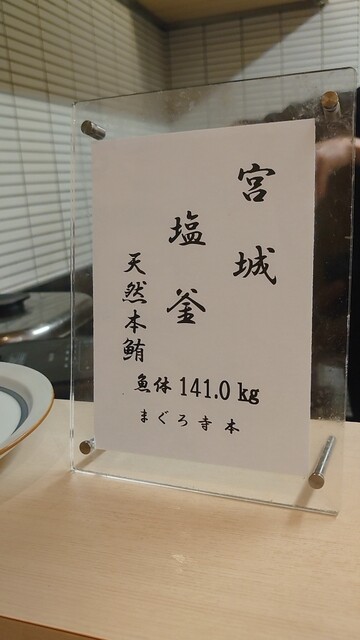 宮城
塩釜
天然本鮪
魚体 141.0 kg
まぐろ寺本